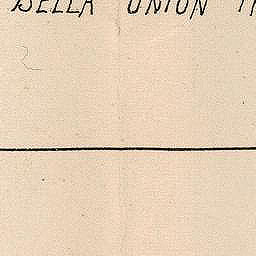 BELLA UNION